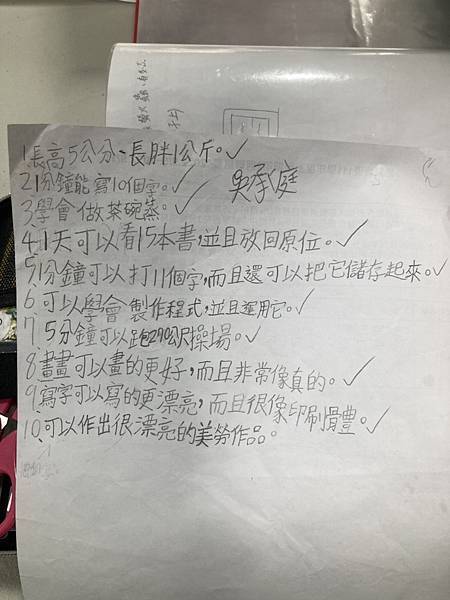 1.長高5公分、長胖1公斤。✓
2.1分鐘能寫10個字。✓
吳承庭
3.學會做茶碗蒸。✓
4.1天可以看15本書,並且放回原位。✓
5.1分鐘可以打11個字,而且還可以把它儲存起來。✓
6.可以學會製作程式,並且運用它。✓
7.5分鐘可以跑290公尺操場。✓
8.畫畫可以畫的更好,而且非常像真的。✓
9.寫字可以寫的更漂亮,而且很像印刷骨豊。✓
10.可以作出很漂亮的美勞作品。